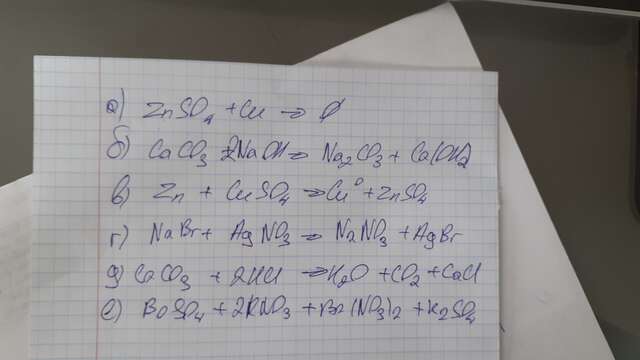 а) ZnSO₄ + Cu → ∅
б) CaCO₃ + 2NaOH → Na₂CO₃ + Ca(OH)₂
в) Zn + CuSO₄ → Cu⁰ + ZnSO₄
г) NaBr + AgNO₃ → N2NO₃ + AgBr
д) CaCO₃ + 2HCl → H₂O + CO₂ + CaCl
е) BaSO₄ + 2KNO₃ + Ba(NO₃)₂ + K₂SO₄